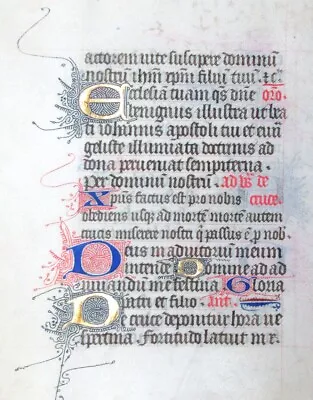 actorem vite suscipere dominū
nostrū ihm xpm filiū tuū. zc̄.
Ecclesiā tuam qs dn̄e orō.
benignus illustra ut bea
ti iohannis apostoli tui et euū
geliste illumiata doctrinis ad
dona perveniat sempiterna.
Per dominū nostrū. ad de
Xp̄us factus est pro nobis cruce.
obediens usqȝ ad mortē mortē autem
crucis miserere nostri qͥ passus ē p nob.
Deus in adiutoriū meum
intende Domine ad ad
iuuandū me festina Gloria
Patri et filio. ant.
De cruce deponitur hora ve
spertina. Fortitudo latuit in